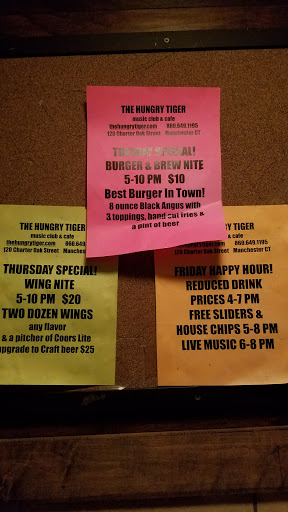 THE HUNGRY TIGER
music club & cafe
thehungrytiger.com 860.649.1195
120 Charter Oak Street Manchester CT
TUESDAY SPECIAL!
BURGER & BREW NITE
5-10 PM $10
Best Burger In Town!
8 ounce Black Angus with
3 toppings, hand cut fries &
a pint of beer
THE HUNGRY TIGER
music club & cafe
thehungrytiger.com 860.649.1
120 Charter Oak Street Manchester
THURSDAY SPECIAL!
WING NITE
5-10 PM $20
TWO DOZEN WINGS
any flavor
& a pitcher of Coors Lite
upgrade to Craft beer $25
GRY TIGER
club & cafe
860.649.1195
120 Charter Oak Street Manchester CT
FRIDAY HAPPY HOUR!
REDUCED DRINK
PRICES 4-7 PM
FREE SLIDERS &
HOUSE CHIPS 5-8 PM
LIVE MUSIC 6-8 PM